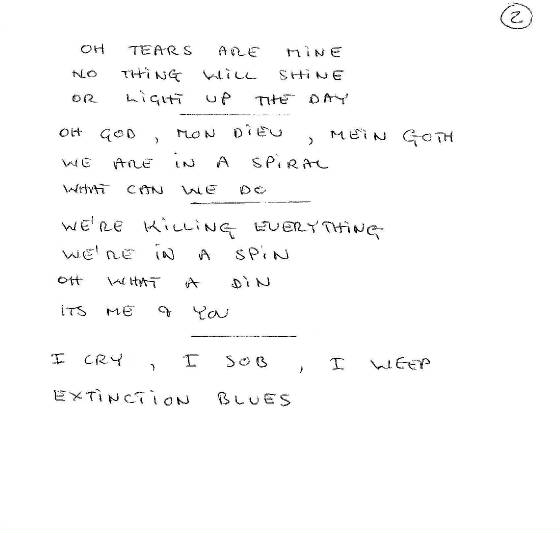 2
OH TEARS ARE MINE
NO THING WILL SHINE
OR LIGHT UP THE DAY
OH GOD, MON DIEU, MEIN GOTH
WE ARE IN A SPIRAL
WHAT CAN WE DO
WE'RE KILLING EVERYTHING
WE'RE IN A SPIN
OH WHAT A DIN
ITS ME & YOU
I CRY, I SOB, I WEEP
EXTINCTION BLUES